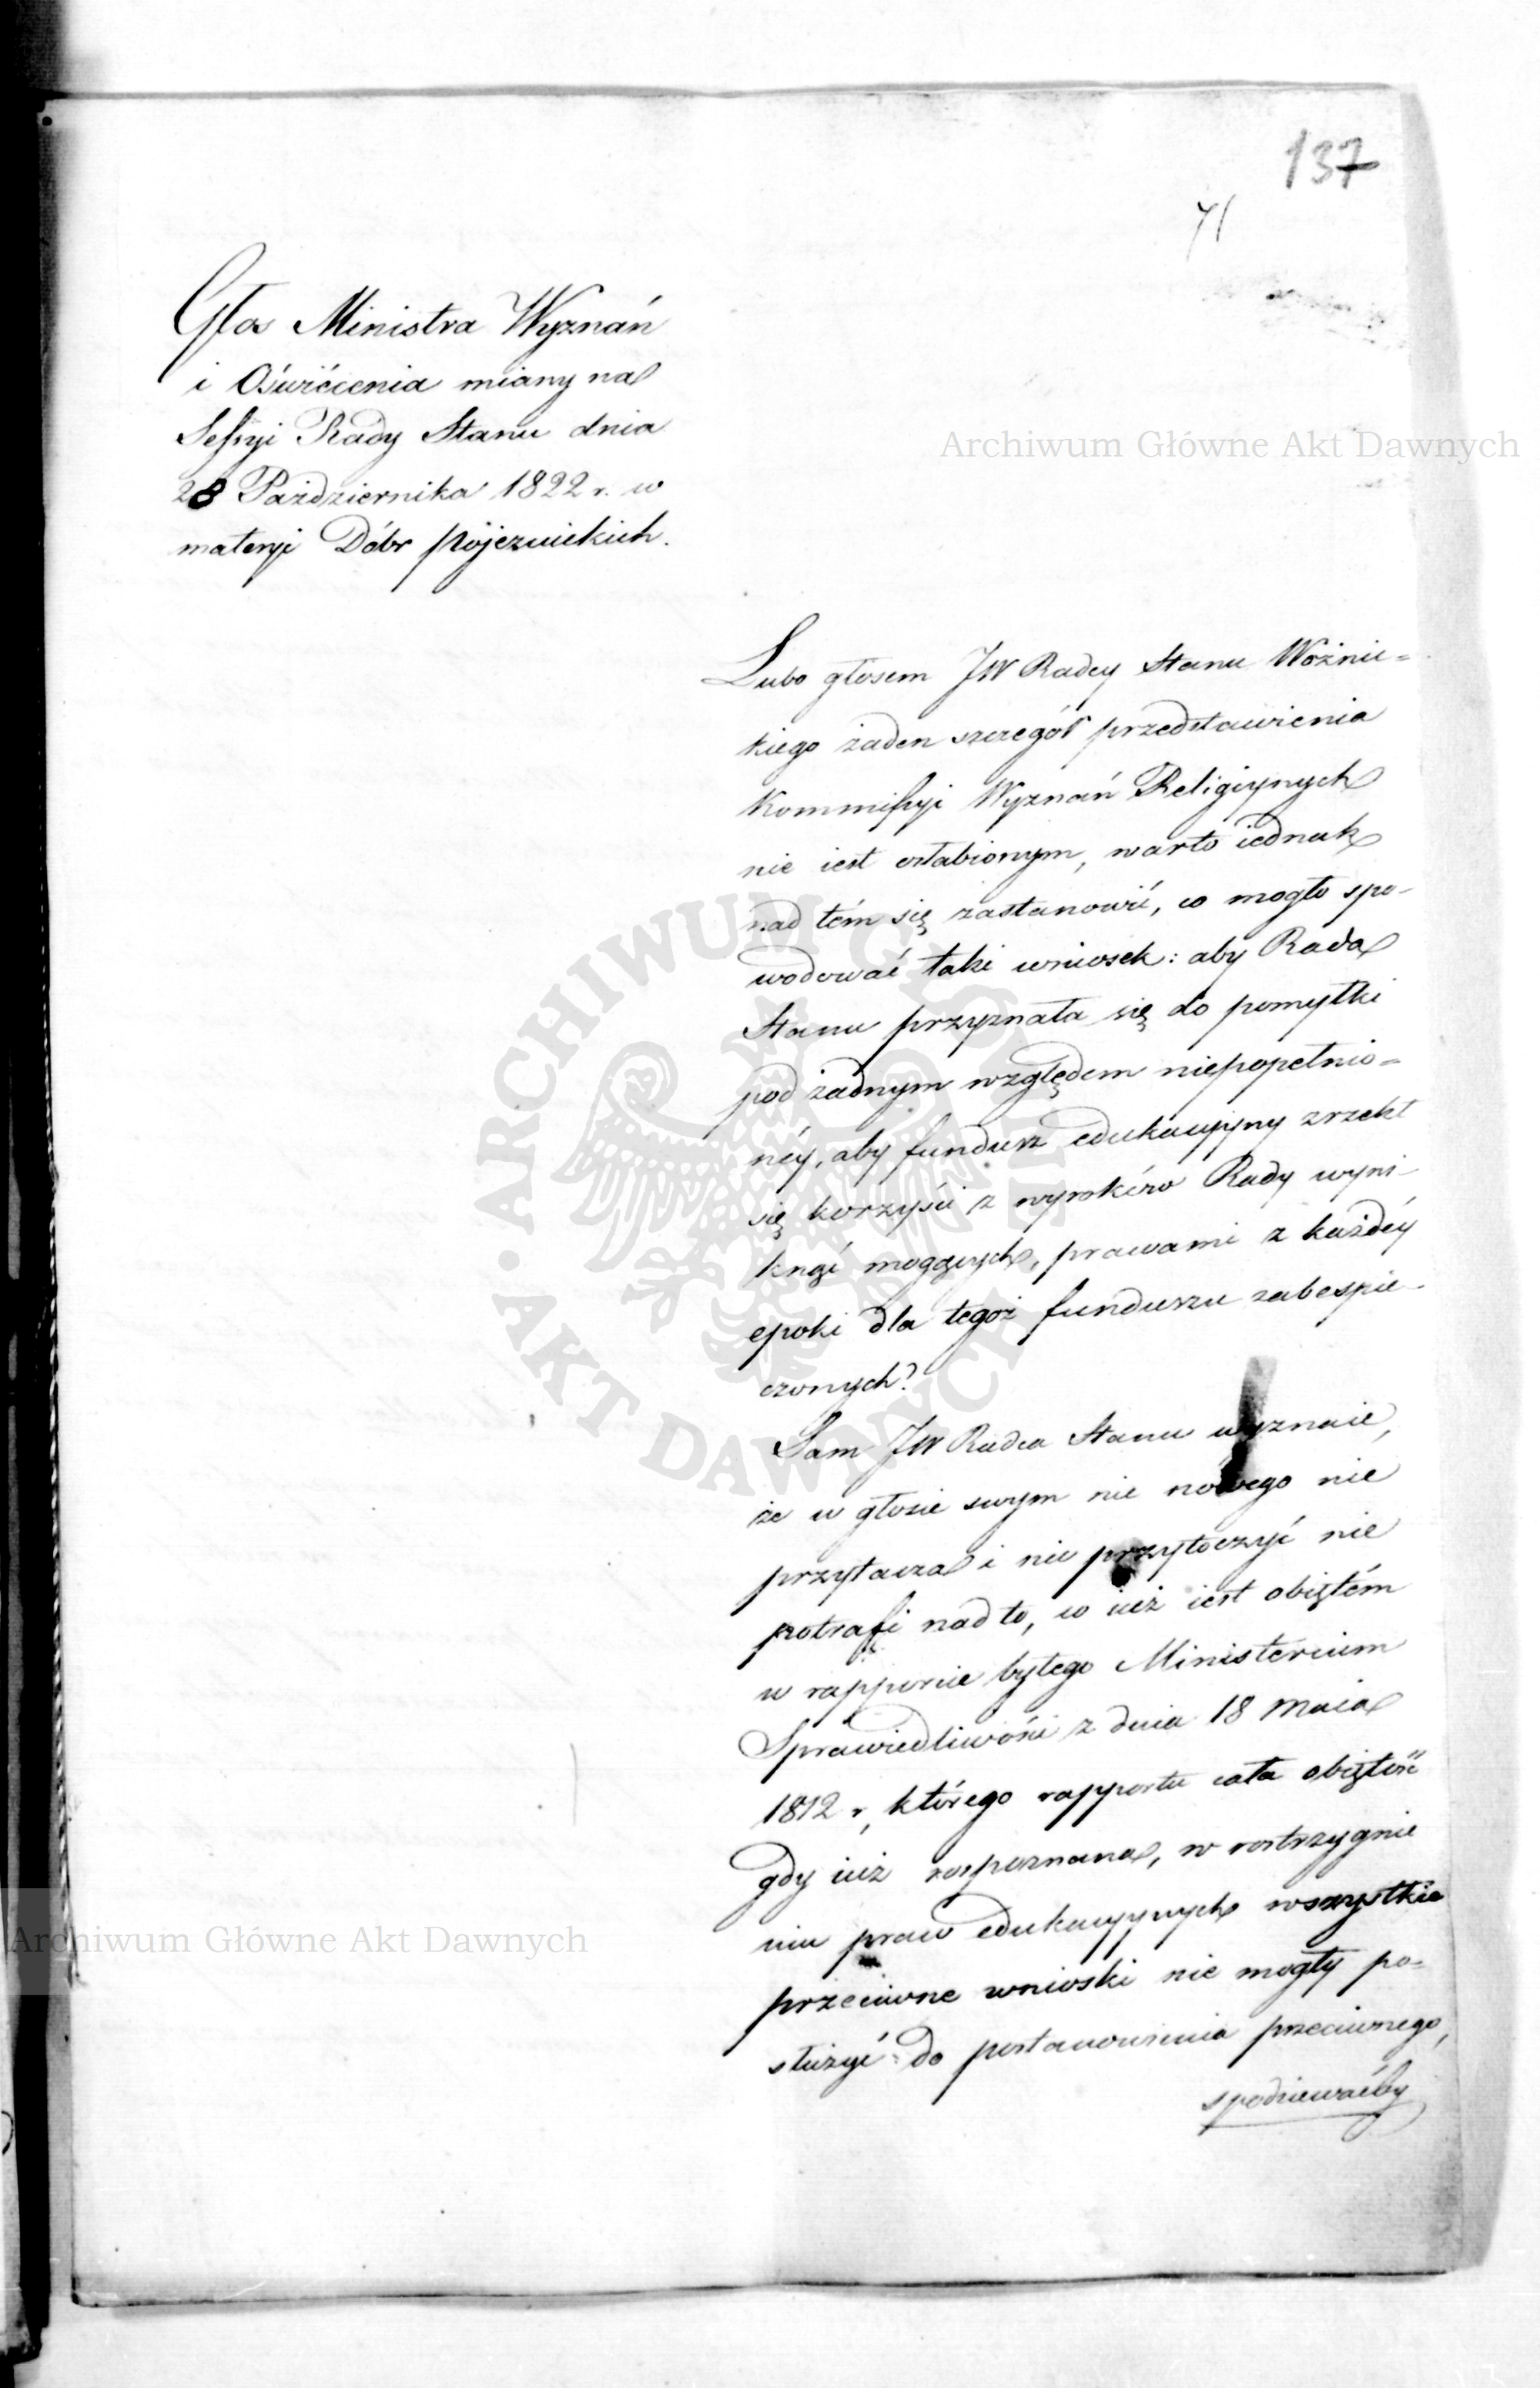 137
71
Głos Ministra Wyznań
i Oświécenia miany na
Sessyi Rady Stanu dnia
28 Października 1822 r. w
materyi Dóbr pojezuickich.
Archiwum Główne Akt Dawnych
Lubo głosem JW Radcy Stanu Woźnic=
kiego żaden szczegół przedstawienia
Kommissyi Wyznań Religiynych
nie iest osłabionym, warto iednak
nad tém się zastanowić, co mogło spo-
wodować taki wniosek: aby Rada
Stanu przyznała się do pomyłki
pod żadnym względem niepopełnio=
néy, aby fundusz edukacyyny zrzekł
się korzyści z wyroków Rady wyni-
knąć mogących, prawami z każdéy
epoki dla tegoż funduszu zabespie-
czonych?
Sam JW Radca Stanu wyznaie,
że w głosie swym nic nowego nie
przytacza i nic przytoczyć nie
potrafi nad to, co iuż iest obiętém
w rapporcie byłego Ministerium
Sprawiedliwości z dnia 18 Maia
1812 r, którego rapportu cała obiętość
gdy iuż rozpoznana, w rostrzygnie
niu praw edukacyynych wszystkie
przeciwne wnioski nie mogły po=
służyć do postanowienia przeciwnego,
spodziewaćby
ARCHIWUM GŁÓWNE
AKT DAWNYCH
Archiwum Główne Akt Dawnych